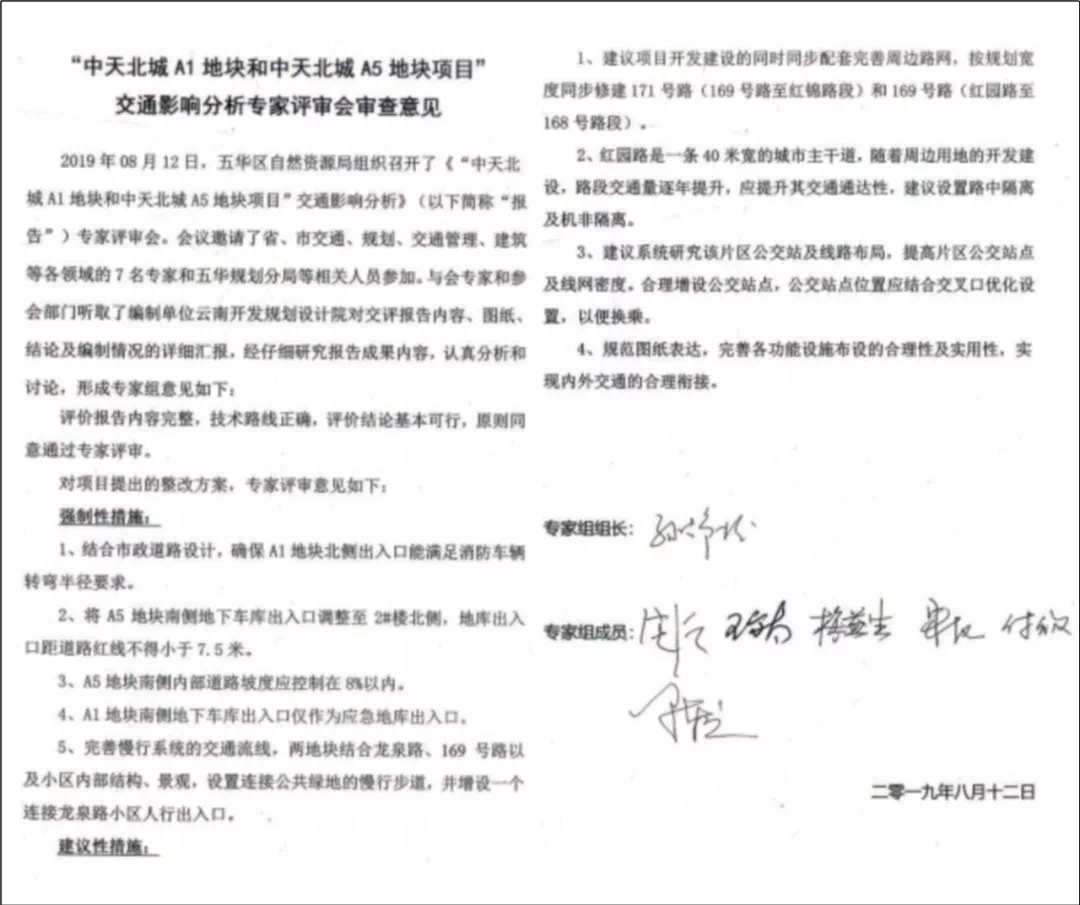 “中天北城 A1 地块和中天北城 A5 地块项目”
交通影响分析专家评审会审查意见
2019 年 08 月 12 日，五华区自然资源局组织召开了《“中天北
城 A1 地块和中天北城 A5 地块项目”交通影响分析》（以下简称“报
告”）专家评审会。会议邀请了省、市交通、规划、交通管理、建筑
等各领域的 7 名专家和五华规划分局等相关人员参加。与会专家和参
会部门听取了编制单位云南开发规划设计院对交评报告内容、图纸、
结论及编制情况的详细汇报，经仔细研究报告成果内容，认真分析和
讨论，形成专家组意见如下：
评价报告内容完整，技术路线正确，评价结论基本可行，原则同
意通过专家评审。
对项目提出的整改方案，专家评审意见如下：
强制性措施：
1、结合市政道路设计，确保 A1 地块北侧出入口能满足消防车辆
转弯半径要求。
2、将 A5 地块南侧地下车库出入口调整至 2#楼北侧，地库出入
口距道路红线不得小于 7.5 米。
3、A5 地块南侧内部道路坡度应控制在 8%以内。
4、A1 地块南侧地下车库出入口仅作为应急地库出入口。
5、完善慢行系统的交通流线，两地块结合龙泉路、169 号路以
及小区内部结构、景观，设置连接公共绿地的慢行步道，并增设一个
连接龙泉路小区人行出入口。
建议性措施：
1、建议项目开发建设的同时同步配套完善周边路网，按规划宽
度同步修建 171 号路（169 号路至红锦路段）和 169 号路（红园路至
168 号路段）。
2、红园路是一条 40 米宽的城市主干道，随着周边用地的开发建
设，路段交通量逐年提升，应提升其交通通达性，建议设置路中隔离
及机非隔离。
3、建议系统研究该片区公交站及线路布局，提高片区公交站点
及线网密度。合理增设公交站点，公交站点位置应结合交叉口优化设
置，以便换乘。
4、规范图纸表达，完善各功能设施布设的合理性及实用性，实
现内外交通的合理衔接。
专家组组长：
专家组成员：
二零一九年八月十二日